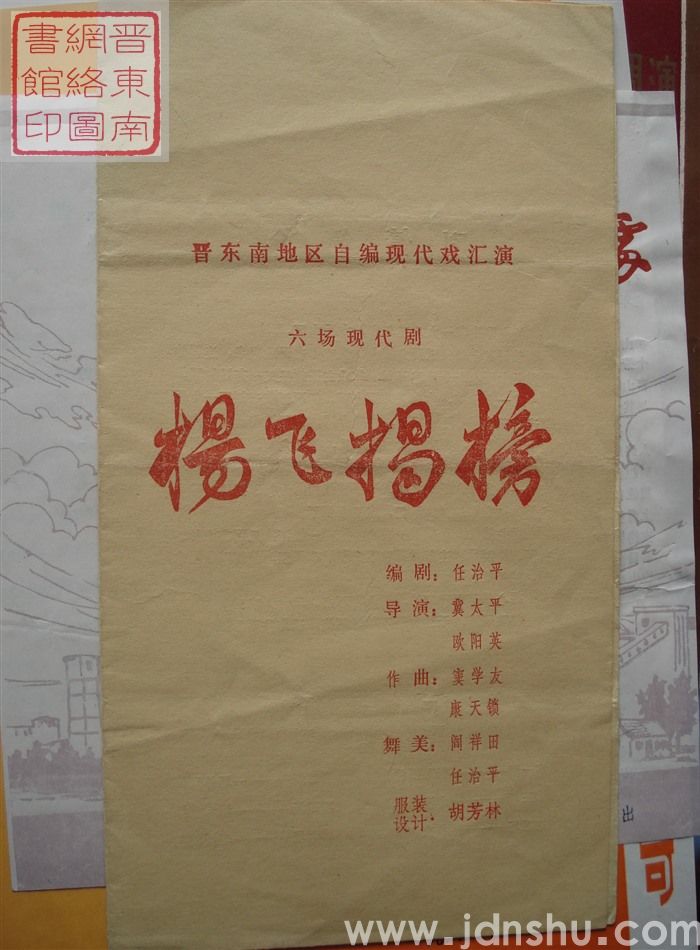 晋東南
網絡圖
書館印
晋东南地区自编现代戏汇演
六场现代剧
楊飞揭榜
编剧：任治平
导演：冀太平
欧阳英
作曲：窦学友
康天锁
舞美：阎祥田
任治平
服装
设计：胡芳林
出
www.jdnshu.com